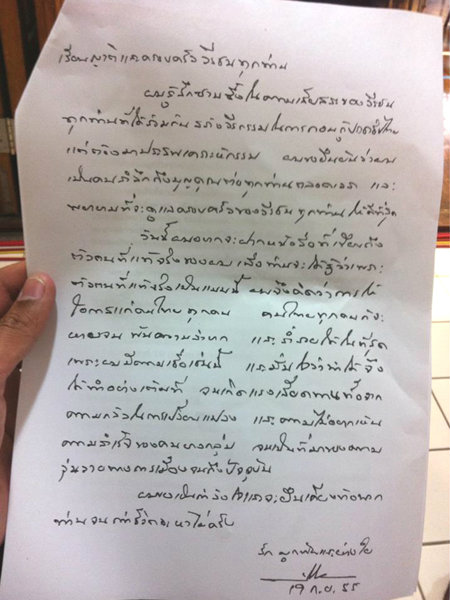 เรียนญาติและครอบครัววีรชนทุกท่าน
ผมรู้สึกซาบซึ้งในความเสียสละของวีรชน
ทุกท่านที่ได้ร่วมกันสร้างวีรกรรมในการกอบกู้ประชาธิปไตย
ผมขอยืนยันว่าผม
เป็นคนรำลึกถึงบุญคุณของทุกท่านตลอดเวลา และ
พยายามที่จะดูแลครอบครัวของวีรชนทุกท่านให้ดีที่สุด
วันนี้ผมอยากจะฝากหนังสือที่เขียนถึง
ตัวตนที่แท้จริงของผม เพื่อท่านจะได้รู้ว่าเพราะ
ตัวตนที่แท้จริงเป็นแบบนี้ ผมจึงคิดว่าการให้
โอกาสแก่คนไทยทุกคน คนไทยทุกคนถึงจะ
พ้นความลำบาก และร่ำรวยได้ในที่สุด
เพราะผมมีความเชื่อเช่นนี้ และมั่นใจว่าทำได้ จึง
ได้ทำอย่างเต็มที่ จนเกิดแรงเสียดทานทั้งจาก
ความกลัวในการเปลี่ยนแปลง และความไม่อยากเห็น
ความสำเร็จของคนบางกลุ่ม จนเป็นที่มาของความ
วุ่นวายทางการเมืองจนถึงปัจจุบัน
ผมขอเป็นกำลังใจและจะยืนเคียงข้างพวก
ท่านจนกว่าชีวิตจะหาไม่ครับ
รัก ผูกพันและห่วงใย
19 ก.ย. 55